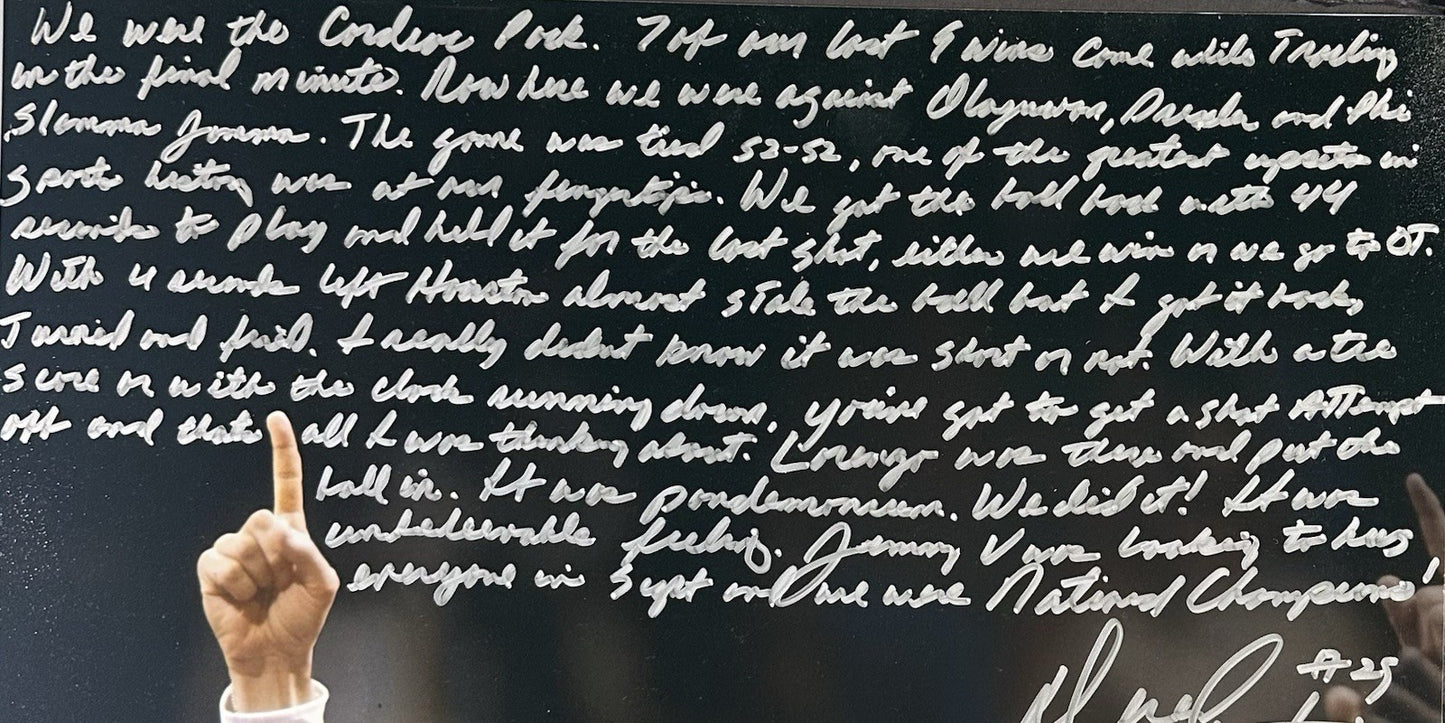 We were the Cardiac Pack. 7 of our last 9 wins come while Trailing
in the final minute. Now here we were against Olajuwon, Drexler and Phi
Slamma Jamma. The game was tied 52-52, one of the greatest upsets in
sports history was at our fingertips. We got the ball back with 44
seconds to play and held it for the last shot, either we win or we go to OT.
With 4 seconds left Houston almost stole the ball but I got it back,
Turned and fired. I really didn't know it was short or not. With a tie
score or with the clock running down, you've got to get a shot ATTempt
off and that's all I was thinking about. Lorenzo was there and put the
ball in. It was pandemonium. We did it! It was
unbelievable feeling. Jimmy V was looking to hug
everyone in sight and we were National Champions!
#25